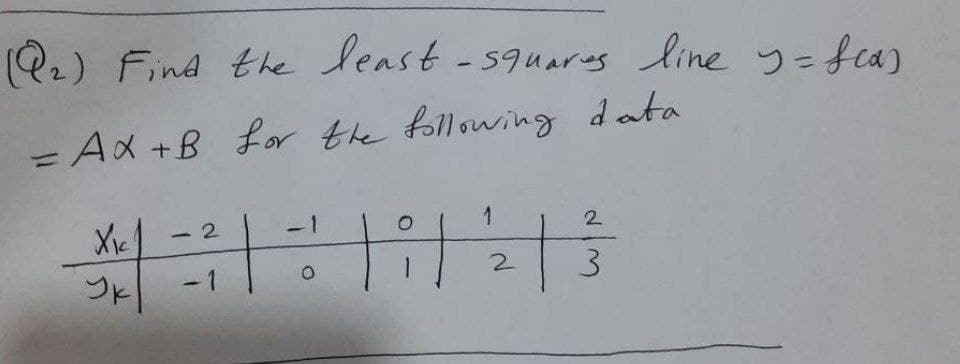 (Q2) Find the least-squares line y = f(x)
= Ax + B for the following data
xk | -2 | -1 | 0 | 1 | 2
yk | -1 | 0 | 1 | 2 | 3